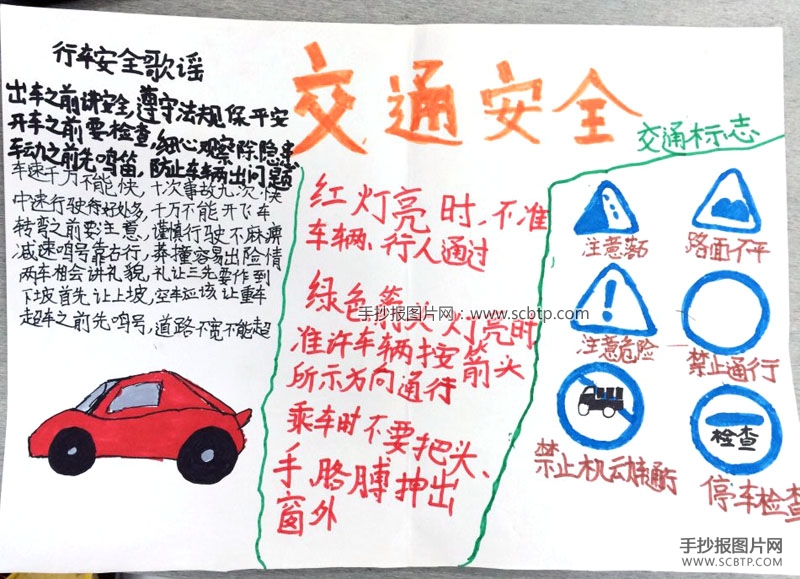 交通安全
行车安全歌谣
出车之前讲安全,遵守法规保平安
开车之前要检查,细心观察除隐患
车动之前先鸣笛,防止车辆出问题
车速千万不能快,十次事故九次快
中速行驶得好处多,千万不能开飞车
转弯之前要注意,谨慎行驶不麻痹
减速鸣号靠右行,莽撞容易出险情
两车相会讲礼貌,礼让三先要作到
下坡首先让上坡,空车应该让重车
超车之前先鸣号,道路不宽不能超
红灯亮时,不准
车辆、行人通过
绿色箭头灯亮时
准许车辆按箭头
所示方向通行
乘车时不要把头、
手、胳膊抻出
窗外
交通标志
注意落石
路面不平
注意危险
禁止通行
禁止机动
通行
检查
停车检查
手抄报图片网:www.scbtp.com
手抄报图片网
WWW.SCBTP.COM